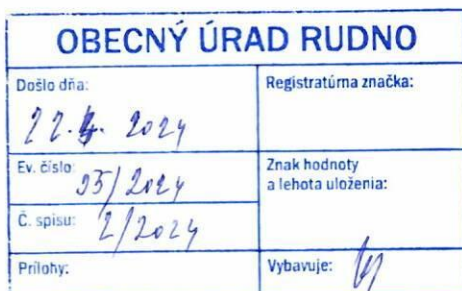 OBECNÝ ÚRAD RUDNO
Došlo dňa:
Registratúrna značka:
22. 2024
Ev. číslo:
95/2024
Znak hodnoty
a lehota uloženia:
Č. spisu:
2/2024
Prílohy:
Vybavuje: